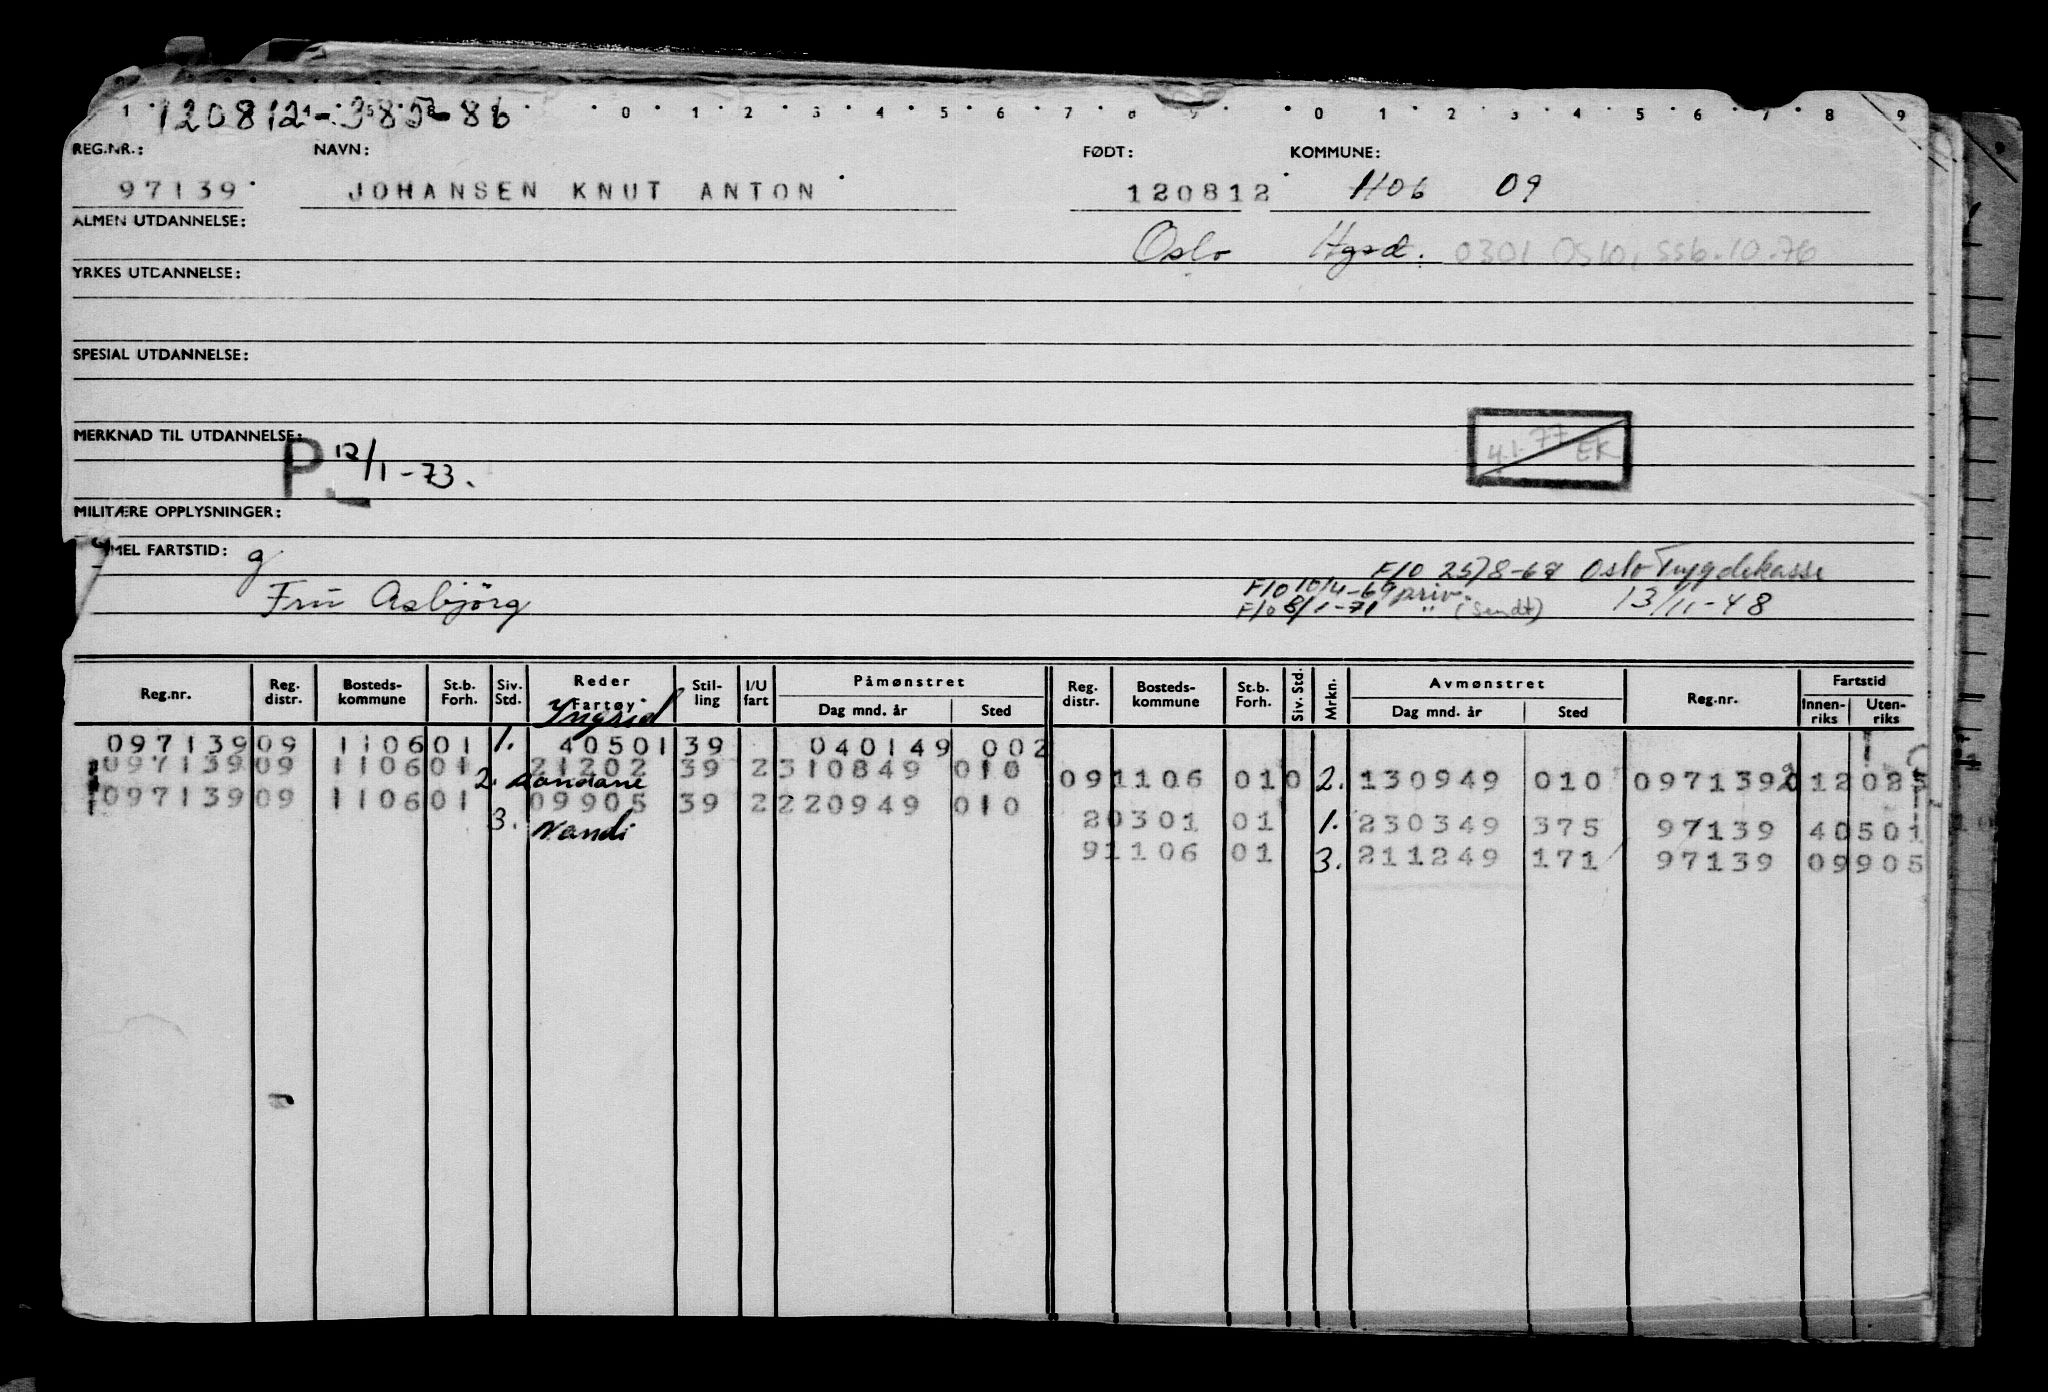 120812-38586
1 0 1 2 3 4 5 6 7 8 9 0 1 2 3 4 5 6 7 8 9
REG.NR.: NAVN: FØDT: KOMMUNE:
97139 JOHANSEN KNUT ANTON 120812 1106 09
ALMEN UTDANNELSE: Oslo Hgsd. 0301 Oslo, SSB.10.76
YRKES UTDANNELSE:
SPESIAL UTDANNELSE:
MERKNAD TIL UTDANNELSE:
P 12/1-73.
4.1.77 EK
MILITÆRE OPPLYSNINGER:
MEL FARTSTID: g
F/O 25/8-67 Oslo Trygdekasse
F/O 10/4-69 priv.
Fru Asbjörg F/O 8/1-71 " (Sendt) 13/11-48
Reg.nr. Reg. distr. Bosteds-kommune St.b. Forh. Siv. Std. Reder Fartøy Stil-ling I/U fart Påmønstret Dag mnd. år Sted Reg. distr. Bosteds-kommune St.b. Forh. Siv. Std. Mrkn. Avmønstret Dag mnd. år Sted Reg.nr. Fartstid Innen-riks Uten-riks
Yngrid
097139 09 1106 01 1. 40501 39 040149 002
097139 09 1106 01 21202 39 2 310849 010
2. Mandane 09 1106 01 0 2. 130949 010 097139 2 12 025
097139 09 1106 01 09905 39 2 220949 010
3. Nandi 2 0301 01 1. 230349 375 97139 40501
9 1106 01 3. 211249 171 97139 09905